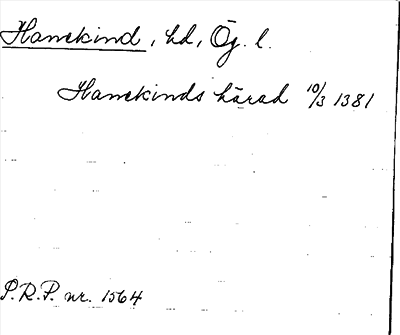 Hanekind, hd, Ög. l.
Hanekinds härad 10/3 1381
P.R.P. nr. 1564